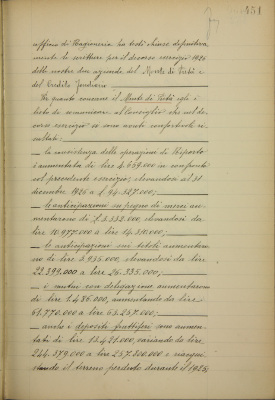 451
ufficio di Ragioneria ha testè chiuse definitiva
mente le scritture per il decorso esercizio 1926
delle nostre due aziende del Monte di Pietà e
del Credito Fondiario
Per quanto concerne il Monte di Pietà egli è
lieto di comunicare al Consiglio che nel de-
corso esercizio si sono avuti confortanti ri-
sultati:
la consistenza delle operazioni di Riporto
è aumentata di lire 4.659.000 in confronto
del precedente esercizio, elevandosi al 31
dicembre 1926 a £ 94.627.000;
le anticipazioni su pegno di merci au-
mentarono di £ 3.333.000 elevandosi da
lire 10.977.000 a lire 14.310.000;
le anticipazioni su titoli aumentaro-
no di lire 3.936.000, elevandosi da lire
22.399.000 a lire 26.335.000;
i mutui con delegazione aumentarono
di lire 1.486.000, aumentando da lire
61.770.000 a lire 63.257.000;
anche i depositi fruttiferi sono aumen-
tati di lire 13.421.000, variando da lire
244.379.000 a lire 257.800.000 e riacqui-
stando il terreno perduto durante il 1925;